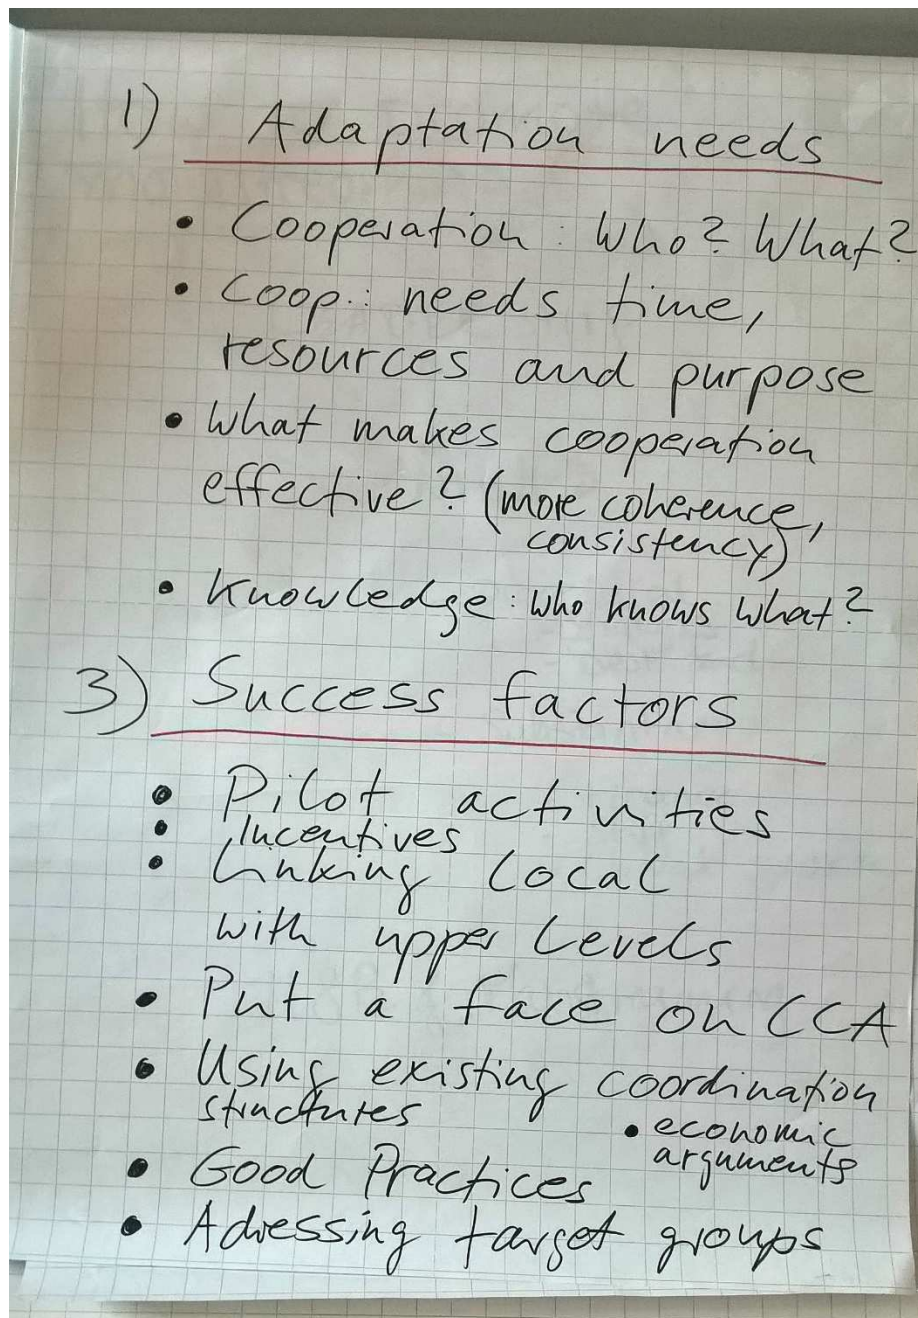 1) Adaptation needs
• Cooperation: Who? What?
• Coop.: needs time,
resources and purpose
• What makes cooperation
effective? (more coherence,
consistency)
• Knowledge: who knows what?
3) Success factors
• Pilot activities
• Incentives
• Linking local
with upper levels
• Put a face on CCA
• Using existing coordination
structures
• economic
arguments
• Good Practices
• Adressing target groups